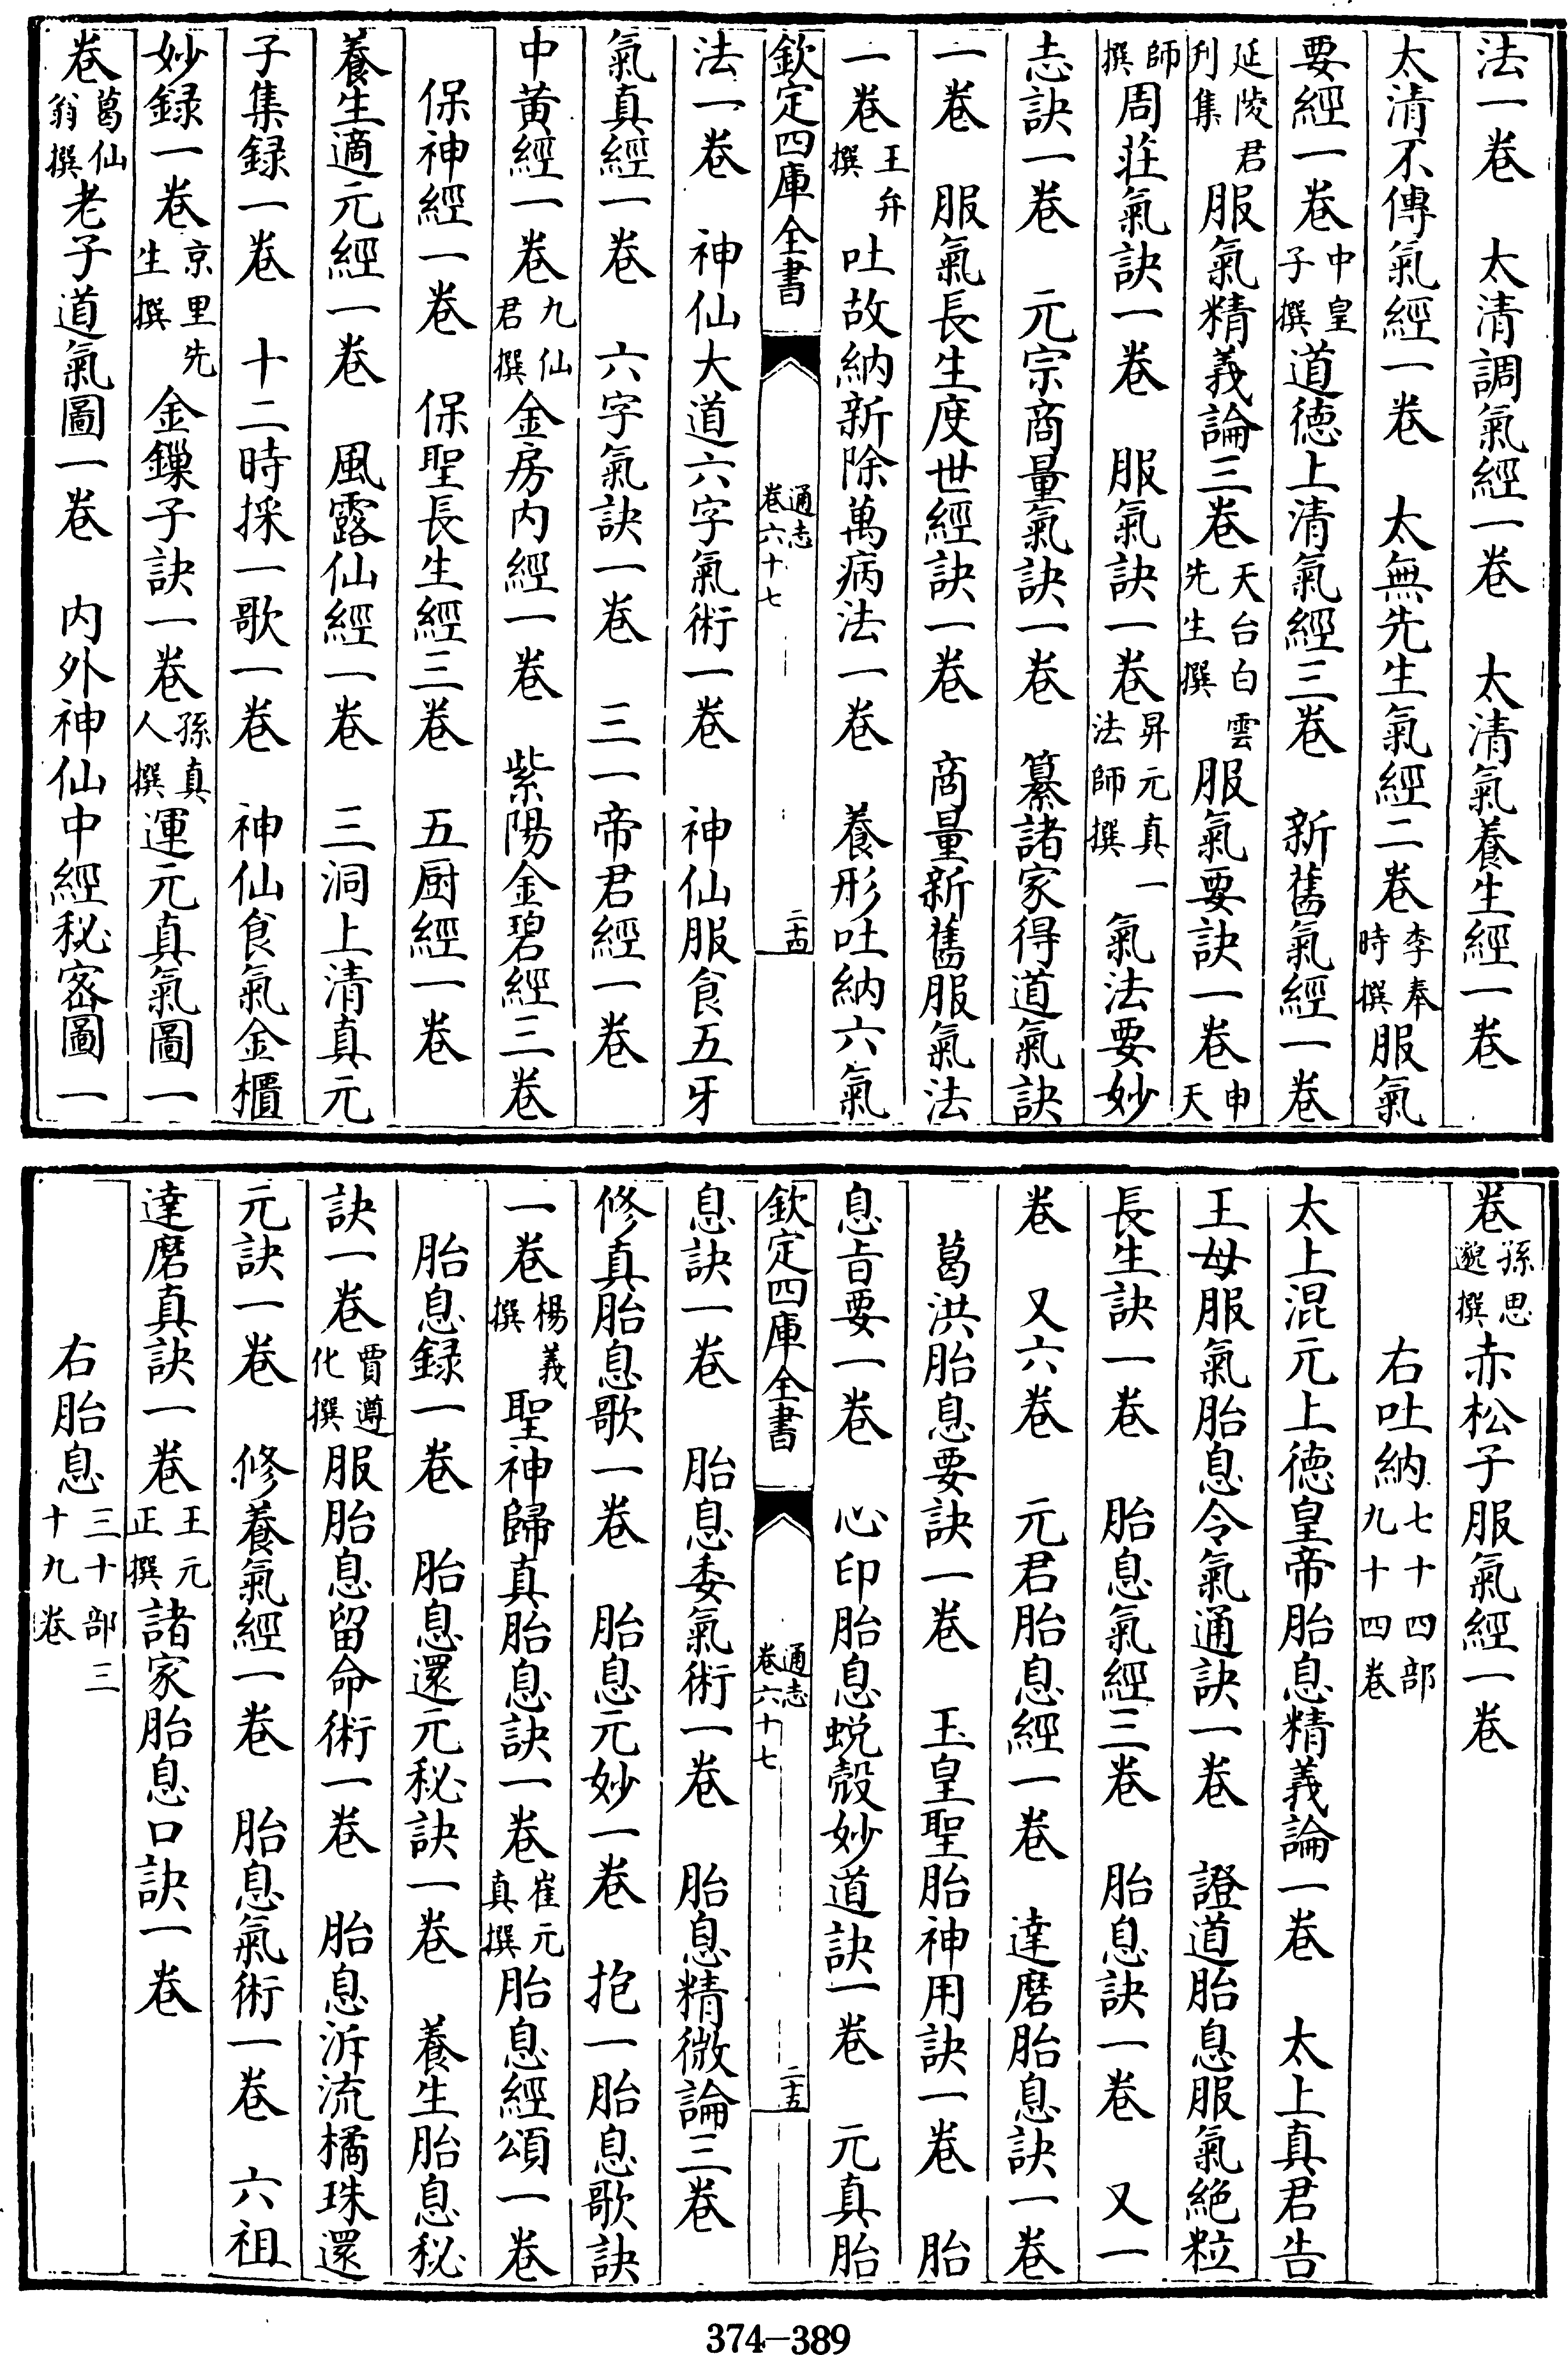 法一卷　太清調氣經一卷　太清氣養生經一卷
太清不傳氣經一卷　太無先生氣經二卷李奉時撰服氣
要經一卷中皇子撰道徳上清氣經三卷　新舊氣經一卷
延陵君刋集服氣精義論三卷天台白雲先生撰服氣要訣一卷申天
師撰周莊氣訣一卷　服氣訣一卷昇元真一法師撰氣法要妙
志訣一卷　元宗商量氣訣一卷　纂諸家得道氣訣
一卷　服氣長生度世經訣一卷　商量新舊服氣法
一卷王弁撰吐故納新除萬病法一卷　養形吐納六氣
欽定四庫全書　通志卷六十七　二十四
法一卷　神仙大道六字氣術一卷　神仙服食五牙
氣真經一卷　六字氣訣一卷　三一帝君經一卷
中黄經一卷九仙君撰金房内經一卷　紫陽金碧經三卷
保神經一卷　保聖長生經三卷　五厨經一卷
養生適元經一卷　風露仙經一卷　三洞上清真元
子集録一卷　十二時採一歌一卷　神仙食氣金櫃
妙録一卷京里先生撰金鏁子訣一卷孫真人撰運元真氣圖一
卷葛仙翁撰老子道氣圖一卷　内外神仙中經秘宻圖一
卷孫思邈撰赤松子服氣經一卷
右吐納七十四部九十四卷
太上混元上徳皇帝胎息精義論一卷　太上真君告
王母服氣胎息令氣通訣一卷　證道胎息服氣絶粒
長生訣一卷　胎息氣經三卷　胎息訣一卷　又一
卷　又六卷　元君胎息經一卷　達磨胎息訣一卷
葛洪胎息要訣一卷　玉皇聖胎神用訣一卷　胎
息㫖要一卷　心印胎息蜕殻妙道訣一卷　元真胎
欽定四庫全書　通志卷六十七　二十五
息訣一卷　胎息委氣術一卷　胎息精微論三卷
修真胎息歌一卷　胎息元妙一卷　抱一胎息歌訣
一卷楊義撰聖神歸真胎息訣一卷崔元真撰胎息經頌一卷
胎息録一卷　胎息還元秘訣一卷　養生胎息秘
訣一卷賈遵化撰服胎息留命術一卷　胎息泝流橘珠還
元訣一卷　修養氣經一卷　胎息氣術一卷　六祖
達磨真訣一卷王元正撰諸家胎息口訣一卷
右胎息三十部三十九卷
374—389